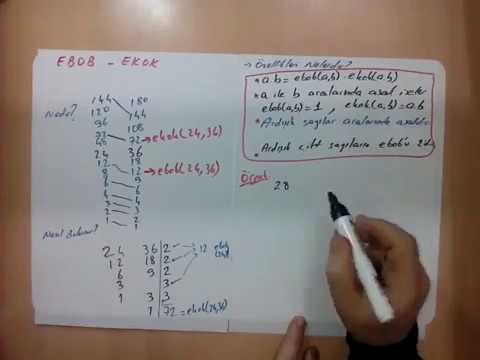 EBOB - EKOK
Nedir?
144 180
120 144
96 108
72 72 → ekok(24,36)
48 36
24 18
12 12 → ebob(24,36)
8 9
6 6
4 4
3 3
2 2
1 1
Nasıl Bulunur?
24 36 2
12 18 2 12 ebob
6 9 2
3 3
1 3 3
1 72 = ekok(24,36)
→ Özellikler Nelerdir?
* a.b = ebob(a,b) . ekok(a,b)
* a ile b aralarında asal iseler
ebob(a,b) = 1 , ekok(a,b) = a.b
* Ardışık sayılar aralarında asaldır
* Ardışık çift sayıların ebob'u 2'dir
Örnek
28